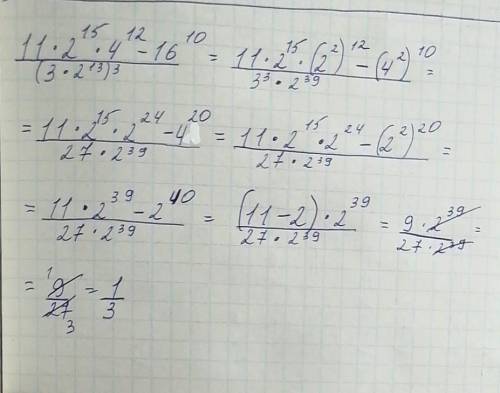 (11·2^15·4^12 − 16^10)/(3·2^13)^3 = (11·2^15·(2^2)^12 − (4^2)^10)/(3^3·2^39) =
= (11·2^15·2^24 − 4^20)/(27·2^39) = (11·2^15·2^24 − (2^2)^20)/(27·2^39) =
= (11·2^39 − 2^40)/(27·2^39) = ((11−2)·2^39)/(27·2^39) = (9·2^39)/(27·2^39) =
= 9/27 = 1/3
1
3